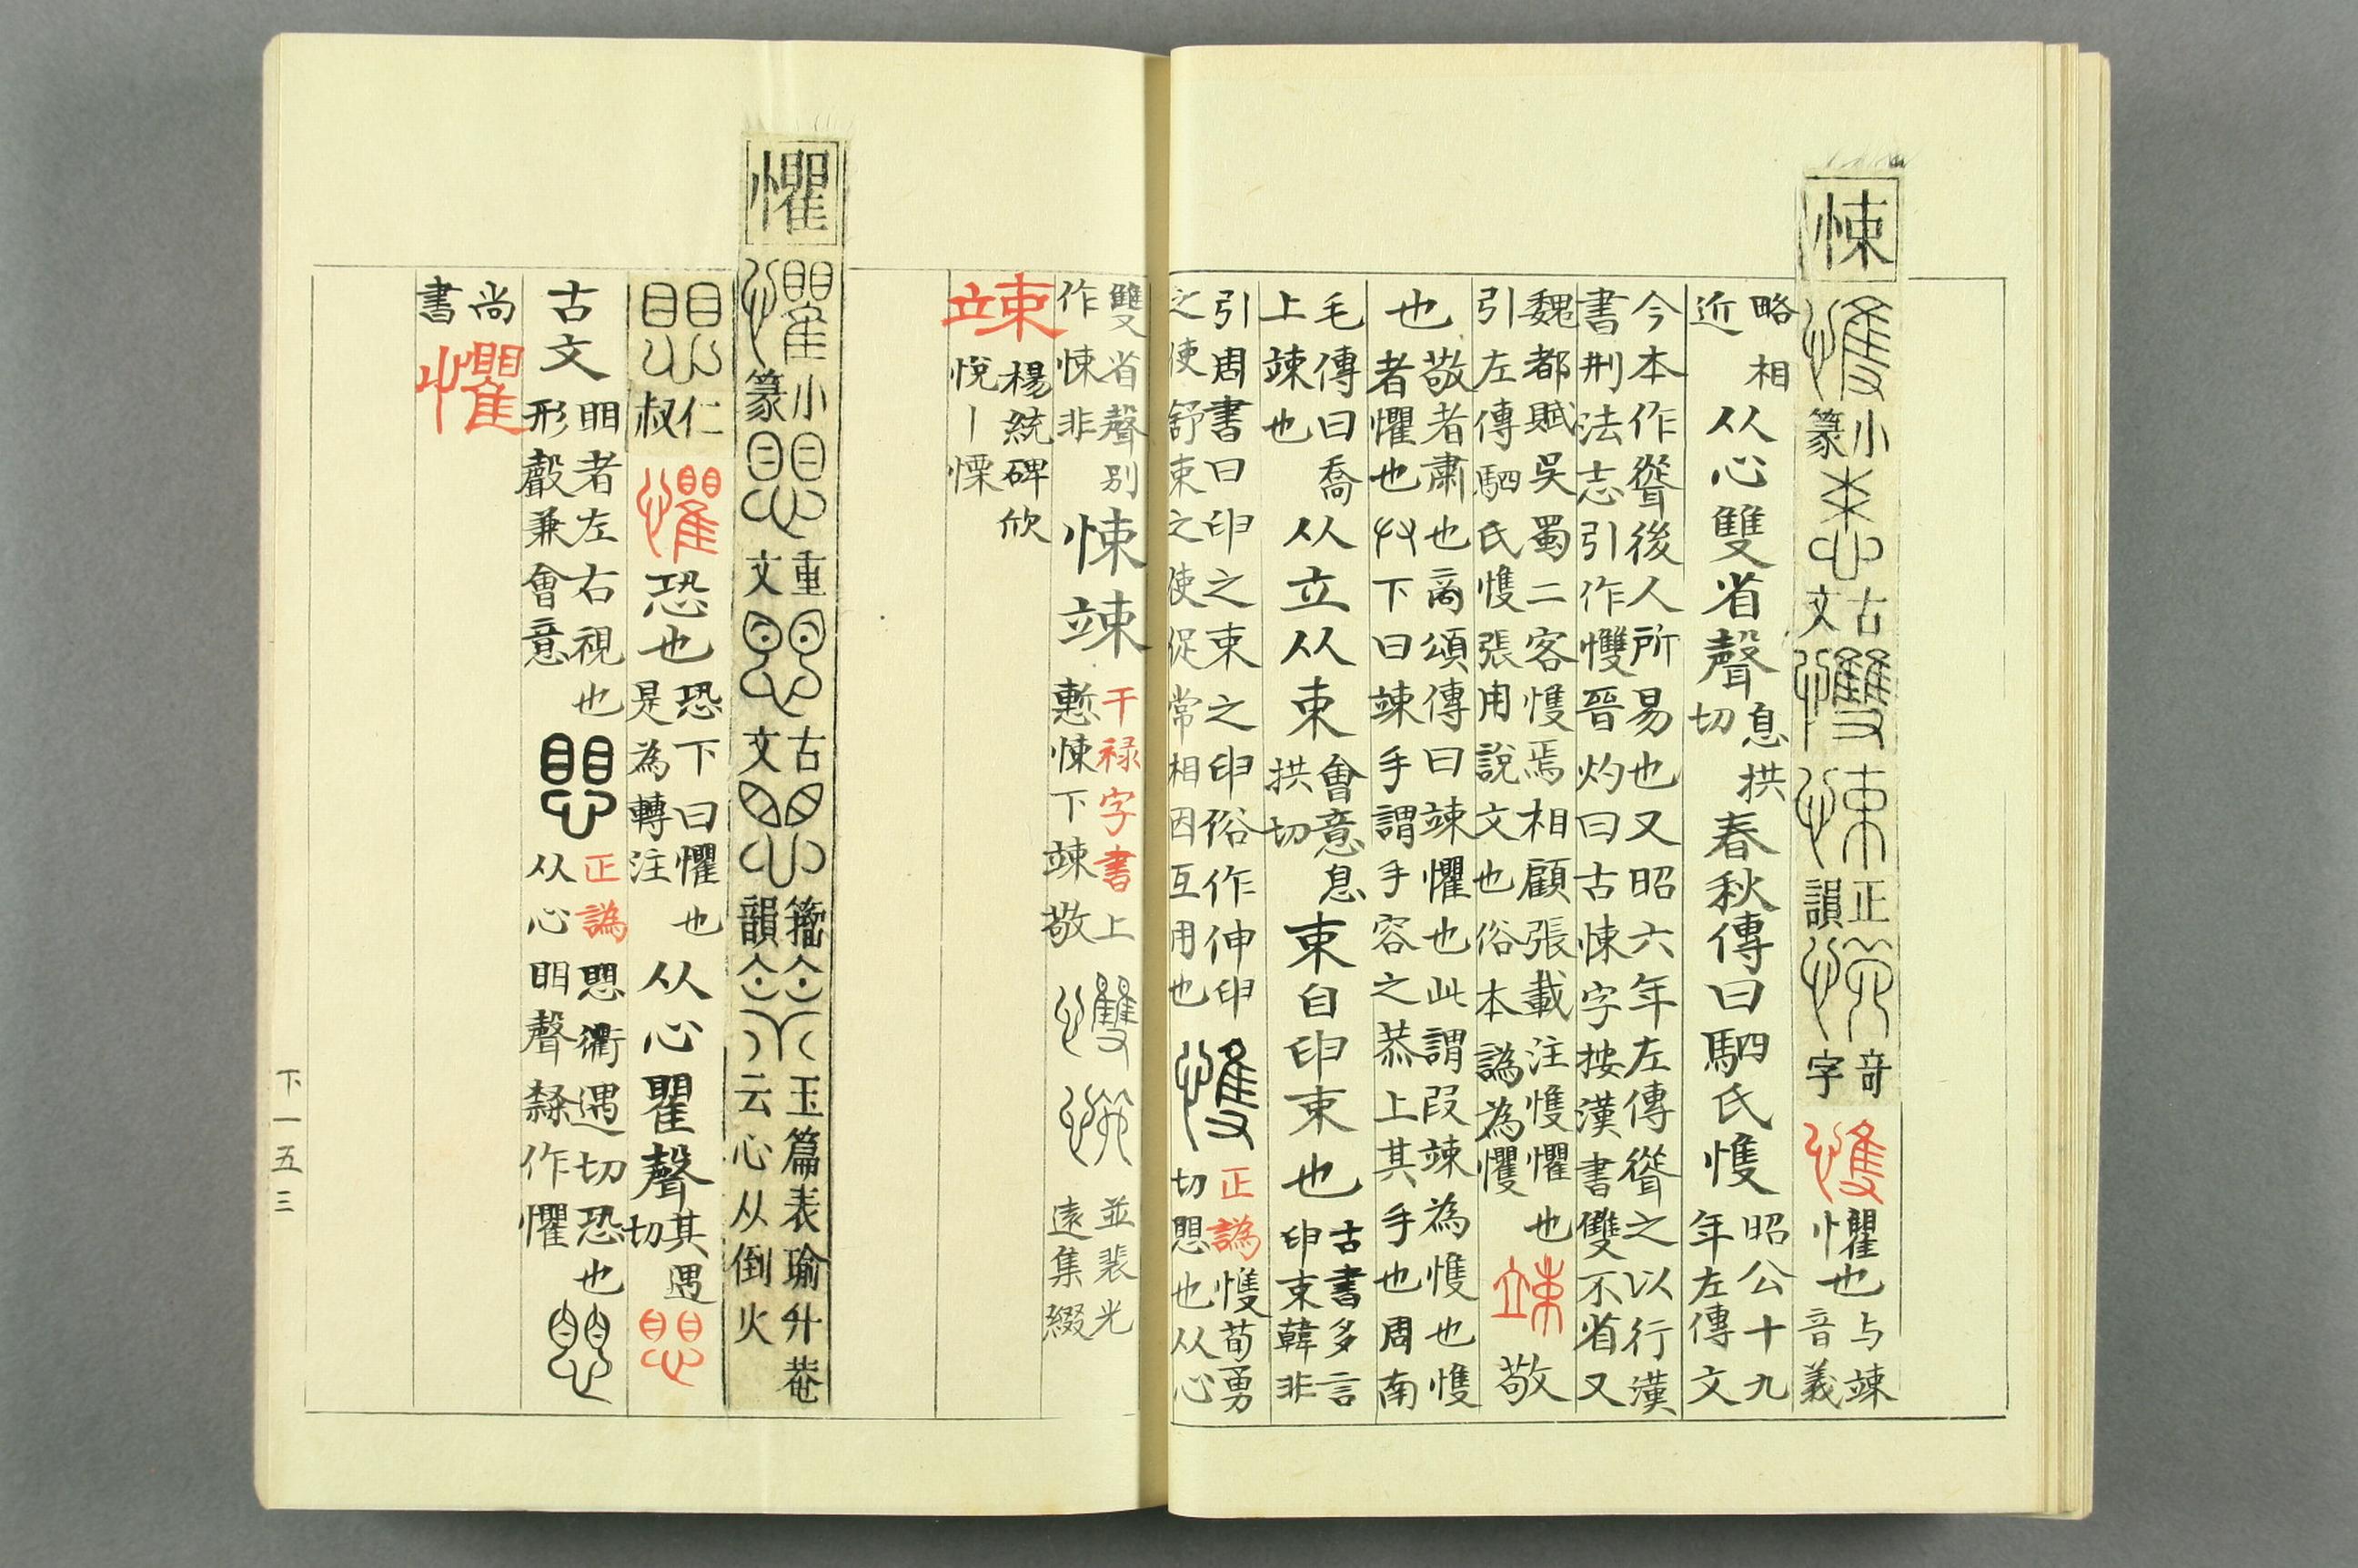 悚 愯 小篆 古文 㩳 悚 正韻 奇字 愯 懼也 与竦音義
略相近 从心雙省聲 息拱切 春秋傳曰駟氏愯 昭公十九年左傳文
今本作聳後人所易也又昭六年左傳聳之以行漢
書刑法志引作㦼晉灼曰古悚字按漢書雙不省又
魏都賦吳蜀二客愯焉相顧張載注愯懼也
引左傳駟氏愯張用說文也俗本譌為懼 竦 敬
也 敬者肅也商頌傳曰竦懼也此謂叚竦為愯也愯
者懼也𠬞下曰竦手謂手容之恭上其手也周南
毛傳曰喬上竦也 从立从束 會意息拱切 束自申束也 古書多言申束韓非
引周書曰申之束之申俗作伸申
之使舒束之使促常相因互用也 愯 正譌 愯荀勇切愳也从心
雙省聲別作悚非 悚竦 干祿字書 上慙悚下竦敬 並裴光遠集綴
竦 楊統碑欣悅丨慄
懼 懼 小篆 愳 重文 愳 古文 籀韻 玉篇表瑜升菴云心从倒火
愳 仁叔 懼 恐也 恐下曰懼也是為轉注 从心瞿聲 其遇切 愳
古文 䀠者左右視也形聲兼會意 愳 正譌 愳衢遇切恐也从心䀠聲隸作懼 愳
尚書 懼
下一五三